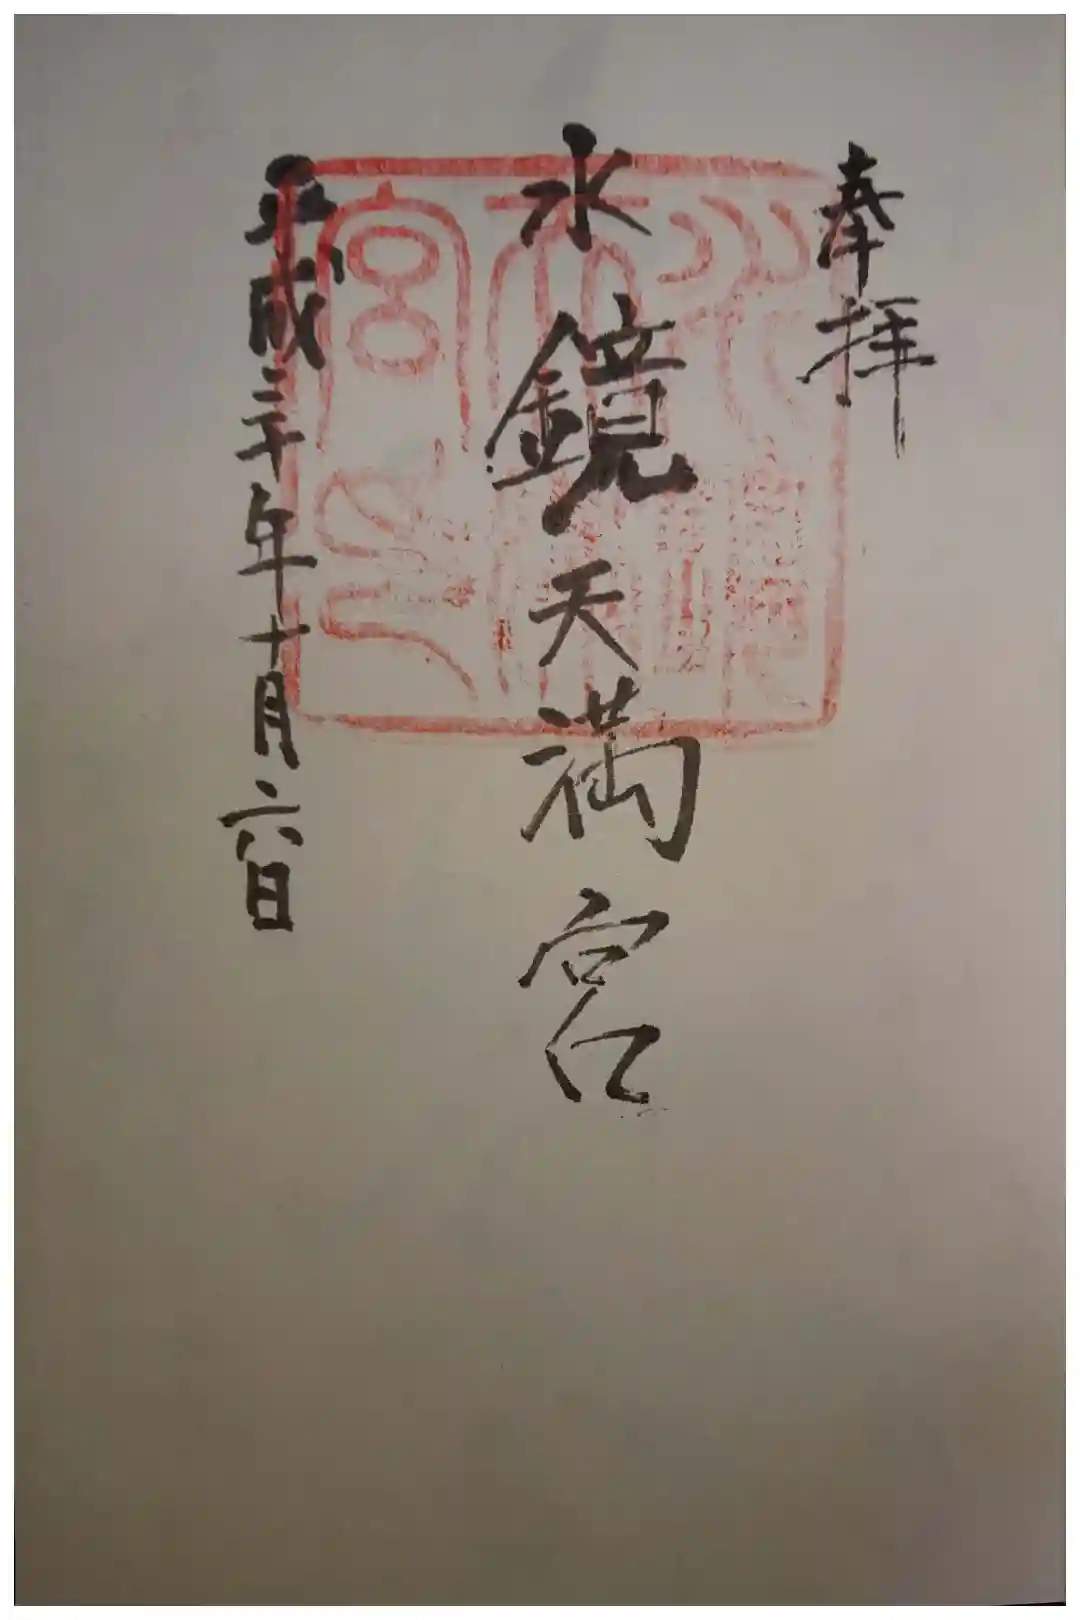 奉拝
水鏡天満宮
平成三十年十月六日